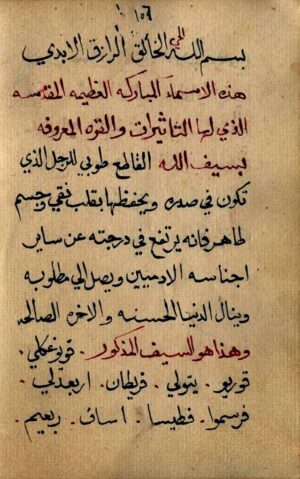 ١٥٦
بسم الله الحي الخالق الرازق الابدي
هذه الاسماء المباركه العظيمه المقدسه
الذي لها التاثيرات والقوه المعروفه
بسيف الله القاطع طوبي للرجل الذي
تكون في صدره ويحفظها بقلب نقي وجسم
طاهر فانه يرتفع في درجته عن ساير
اجناسه الادميين ويصل الي مطلوبه
وينال الدنيا الحسنه والاخره الصالحه
وهذا هو السيف المذكور .
قوريع . يتولي . قريطان .
فرسموا . فطيسا . اساف . ربعيم .